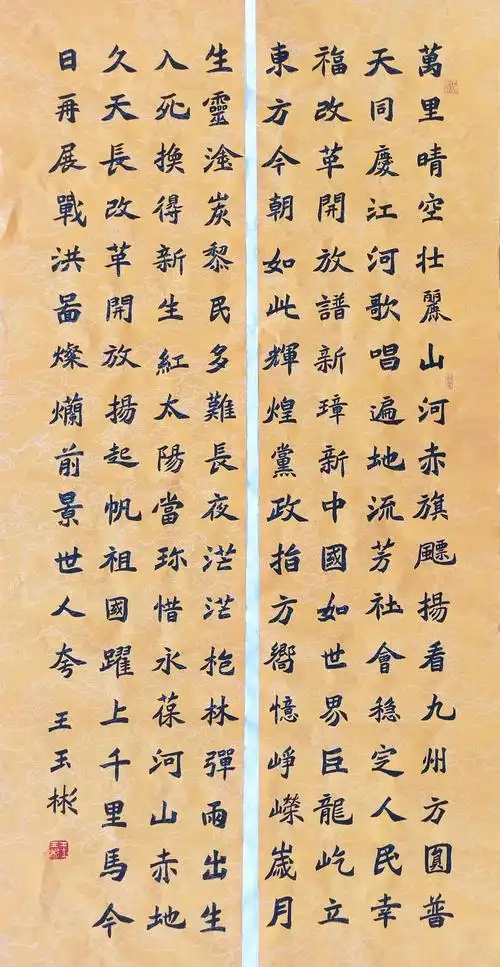 萬里晴空壯麗山河赤旗飄揚看九州方圓普
天同慶江河歌唱遍地流芳社會穩定人民幸
福改革開放譜新璋新中國如世界巨龍屹立
東方今朝如此輝煌黨政指方嚮憶崢嶸歲月
生靈淦炭黎民多難長夜茫茫枪林彈雨出生
入死換得新生紅太陽當珎惜永葆河山赤地
久天長改革開放揚起帆祖國躍上千里馬今
日再展戰洪啚燦爛前景世人夸
王玉彬